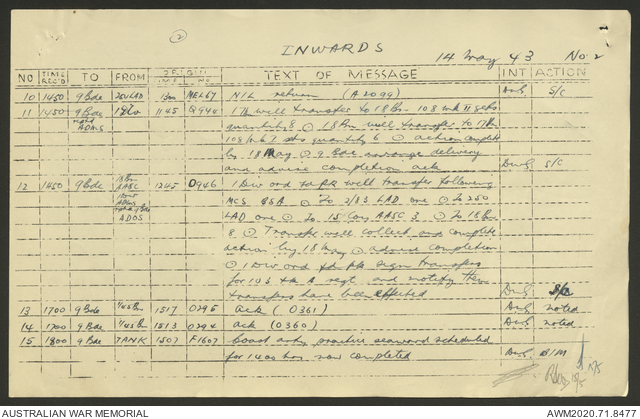 2
INWARDS
14 May 43 No. 2
NO TIME REC'D TO FROM TEXT OF MESSAGE INT ACTION
10 1450 9 Bde 20 LAD MEL67 NIL return (A2099) S/C
11 1450 9 Bde 1145 Q944 17th will transfer to 18 Bn 108 mk II sets
rptd ADMS quantity 8 ⊙ 18 Bn will transfer to 17th
108 sets quantity 6 ⊙ action complete
by 18 May ⊙ 9 Bde arrange delivery
and advise completion ack S/C
12 1450 9 Bde 18 Bn 1245 O946 1 Div ord will transfer following
AASC MCS BSA ⊙ To 2/83 LAD one ⊙ To 250
LAD one ⊙ To 15 Coy AASC 3 ⊙ To 18 Bn
ADOS 8 ⊙ Transfer will collect and complete
action by 18 May ⊙ advise completion
⊙ 1 Div ord sign transfers
for 103 regt and notify
transfers have been effected S/C
13 1700 9 Bde 1/45 Bn 1517 O295 ack (O361) noted
14 1700 9 Bde 1/45 Bn 1513 O294 ack (O360) noted
15 1800 9 Bde TANK 1507 F1607 Coast arty practice seaward scheduled
for 1400 hrs now completed BIM
AUSTRALIAN WAR MEMORIAL AWM2020.71.8477